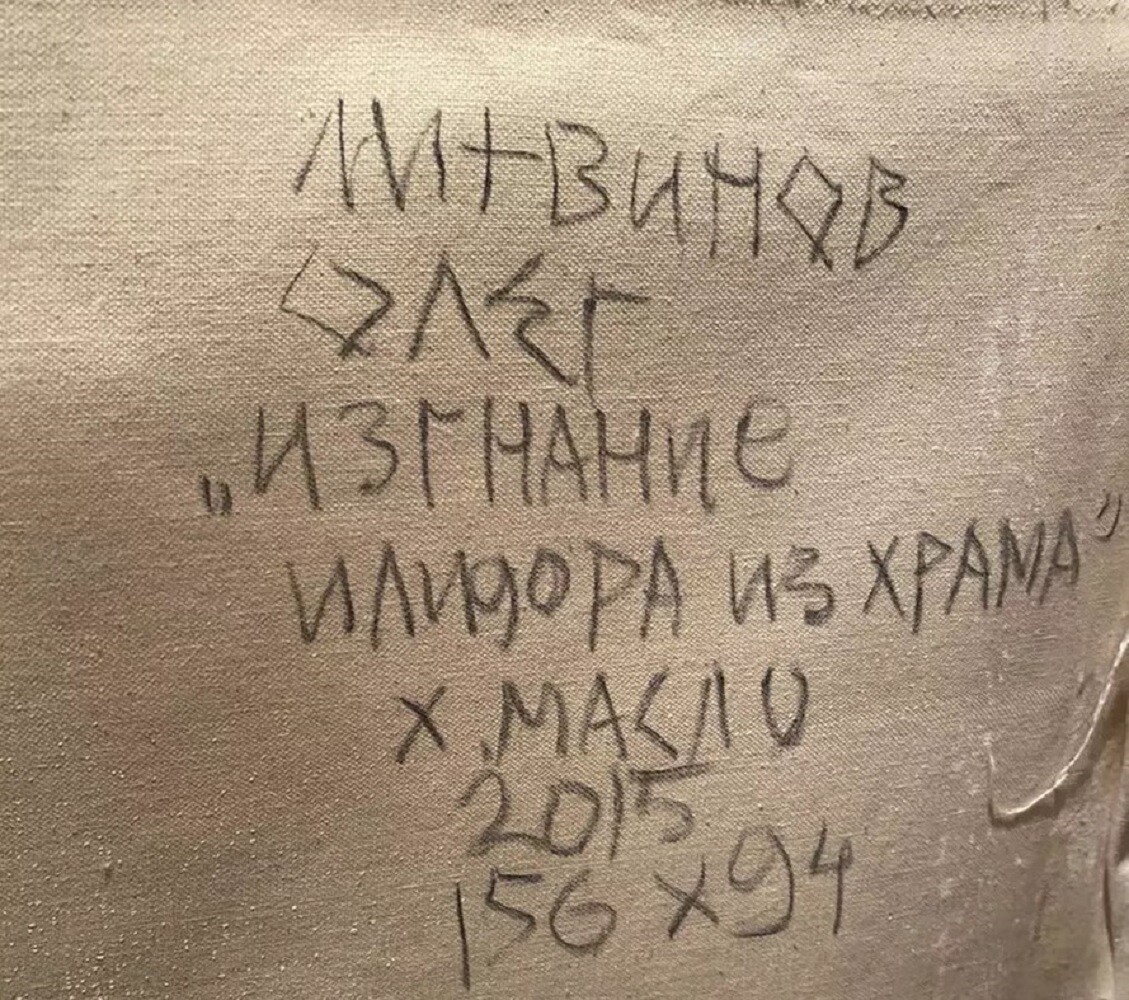 ЛИТВИНОВ
ОЛЕГ
„ИЗГНАНИЕ
ИЛИДОРА ИЗ ХРАМА"
Х.МАСЛО
2015
156 х 94